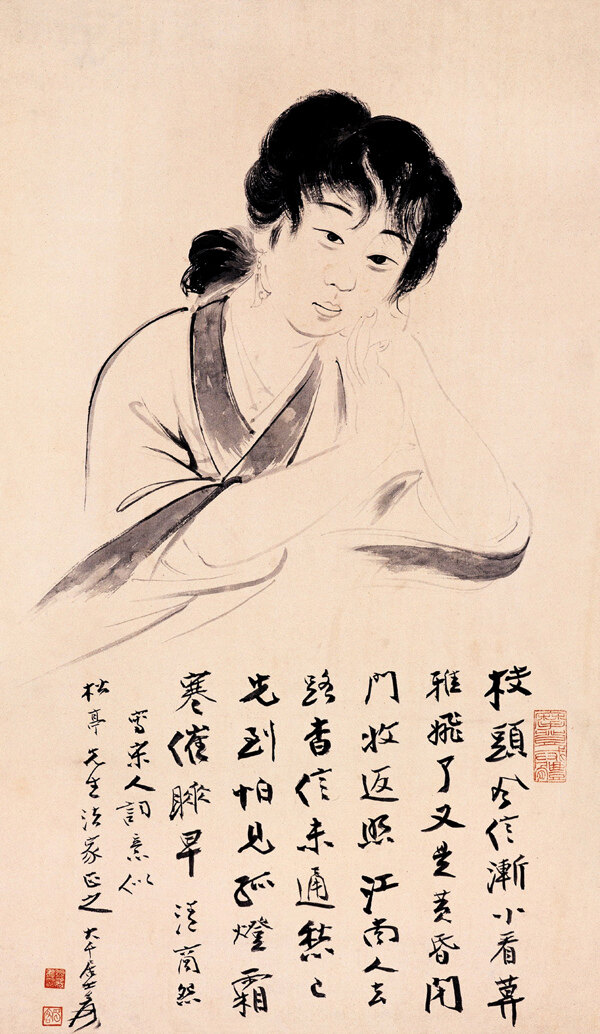 枝頭风信漸小看莫
雅飛了又是黄昏閉
門收返照江南人去
路杳信未通愁已
先到怕見孤燈霜
寒催睡早 清商怨
寫宋人詞意似
松亭先生法家正之 大千居士爰